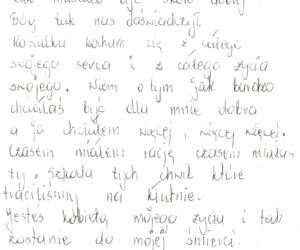 musiało być skoro dobry
Bóg tak nas doświadczył
Kasiulku kocham cię z całego
swojego serca i z całego życia
swojego. Wiem o tym jak bardzo
chciałaś być dla mnie dobra
a ja chciałem więcej, więcej więcej.
Czasem miałem rację czasem miałaś
ty. Szkoda tych chwil które
traciliśmy na kłutnie.
Jesteś kobietą mojego życia i tak
zostanie do mojej śmierci.